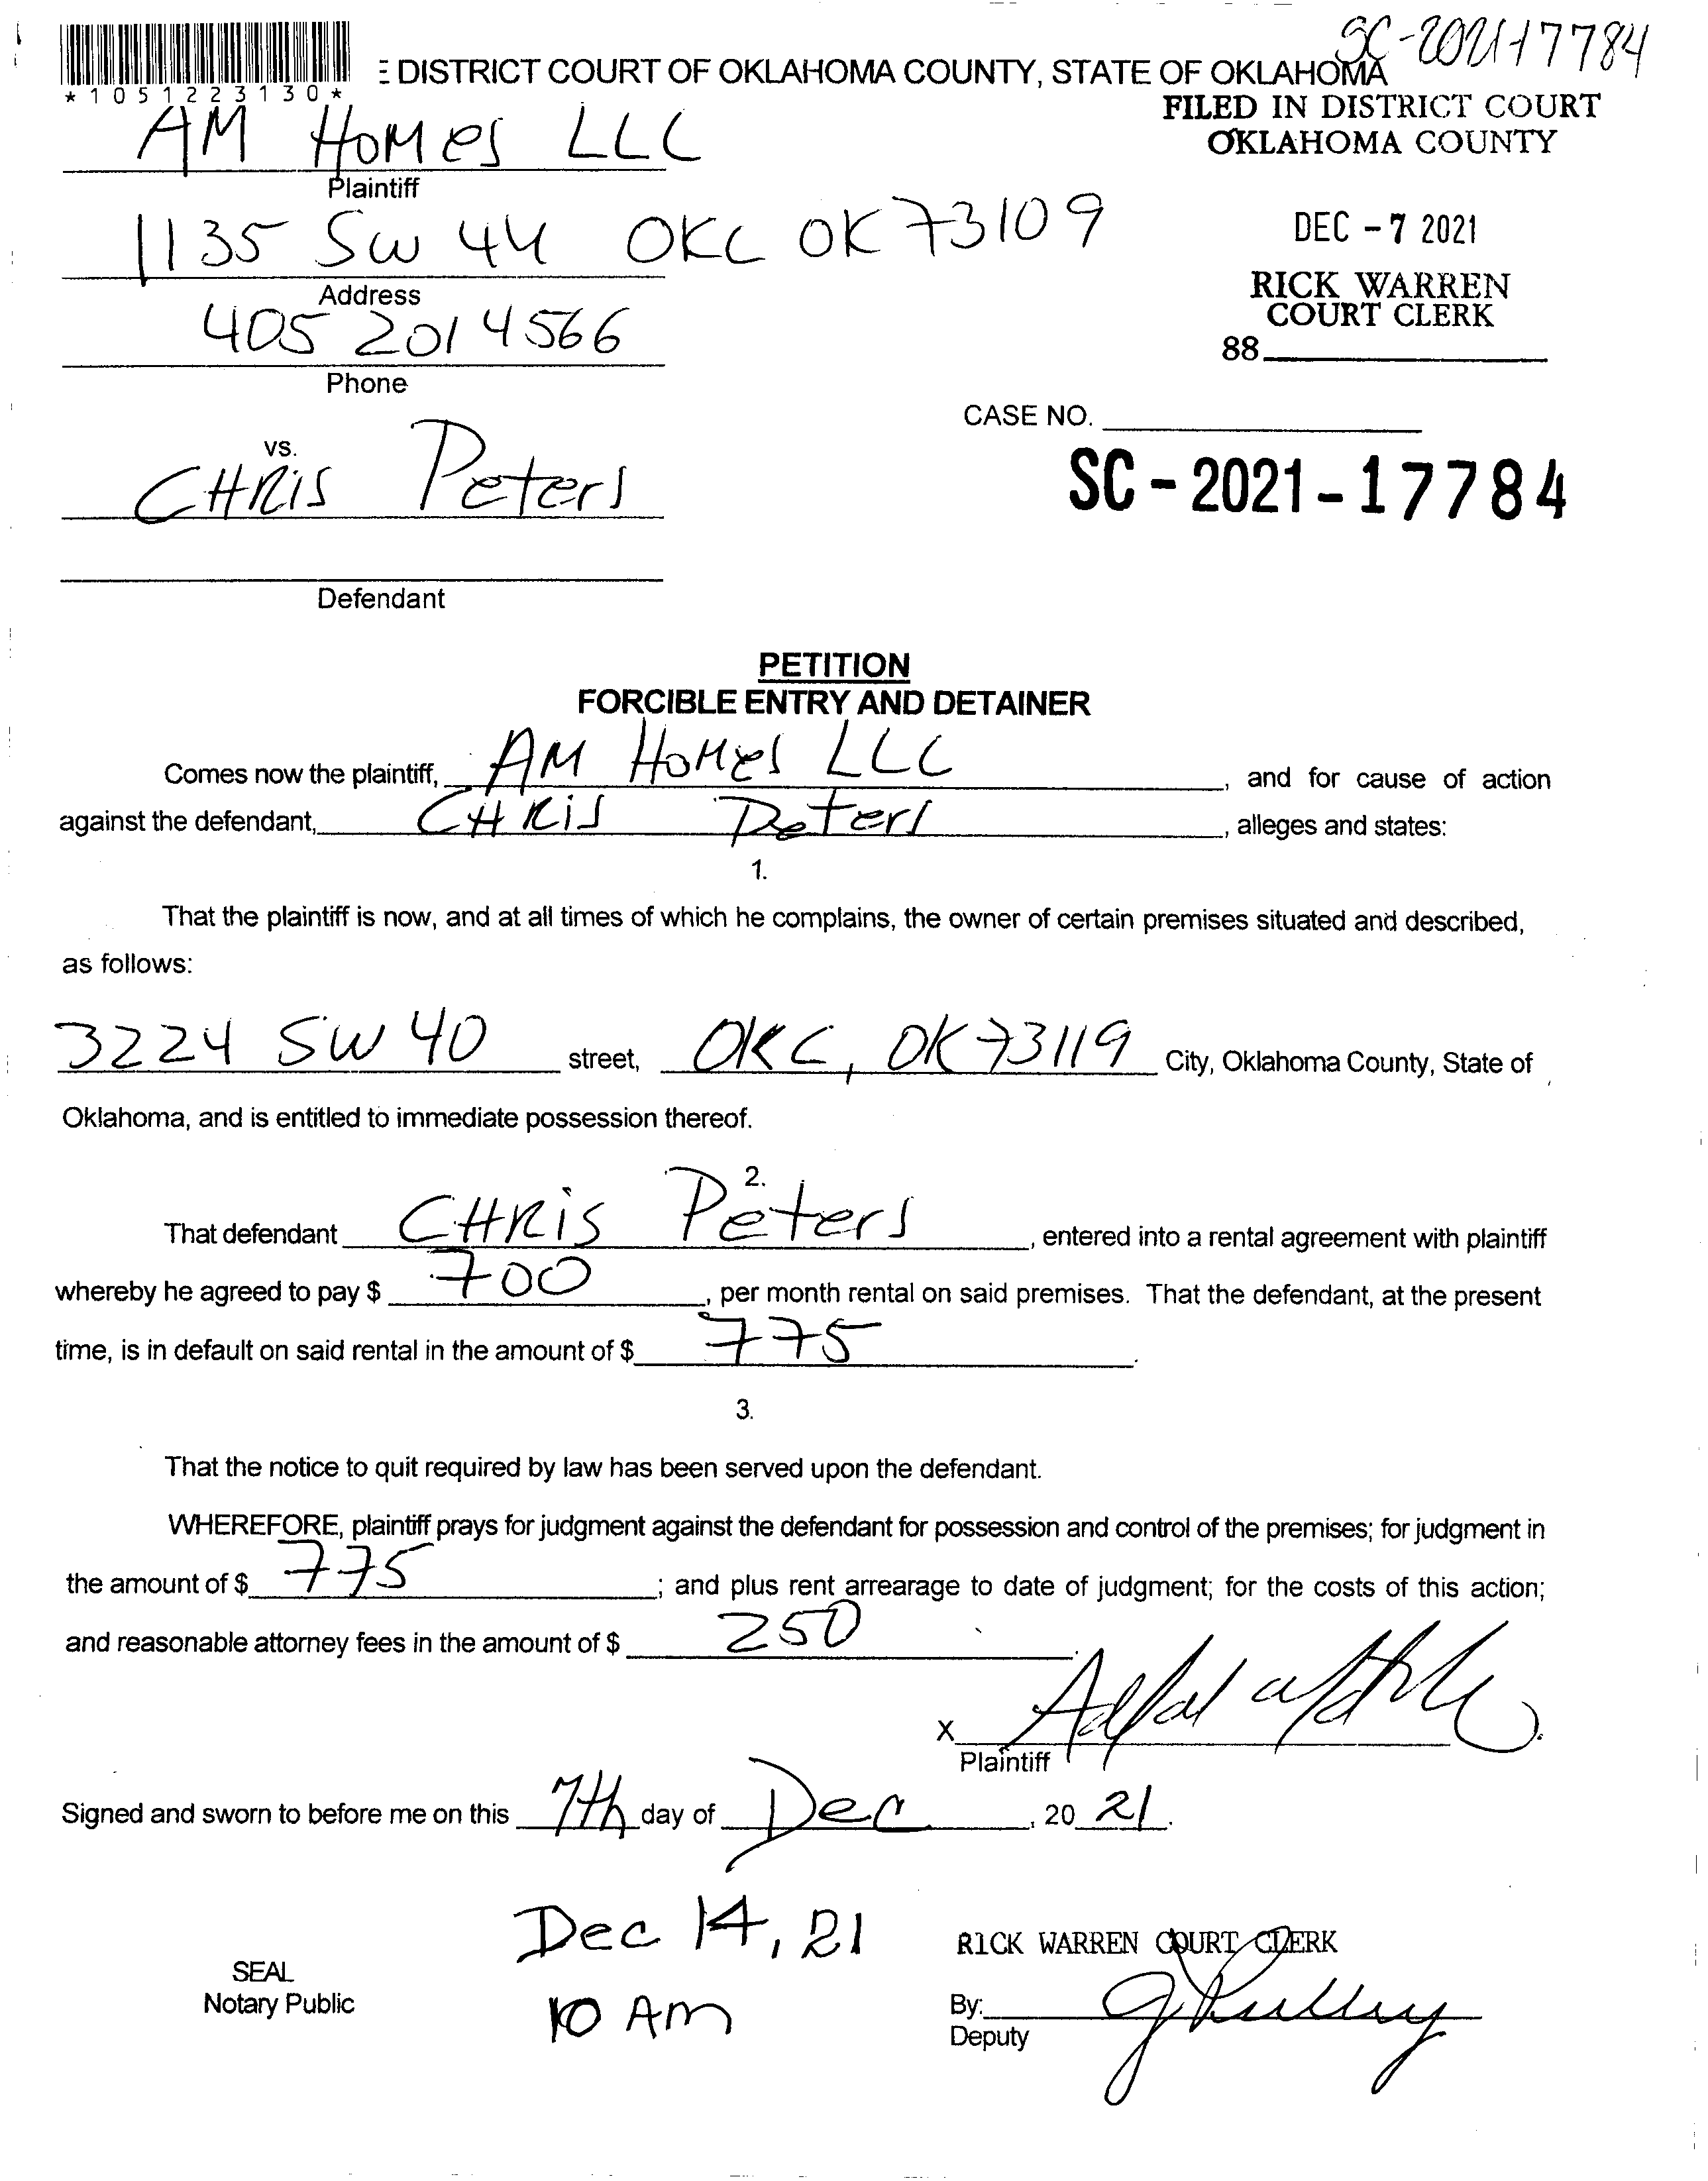 SC-2021-17784
DISTRICT COURT OF OKLAHOMA COUNTY, STATE OF OKLAHOMA
* 1 0 5 1 2 2 3 1 3 0 *
FILED IN DISTRICT COURT
OKLAHOMA COUNTY
AM HOMES LLC
Plaintiff
DEC - 7 2021
1135 SW 44 OKC OK 73109
Address
RICK WARREN
COURT CLERK
405 201 4566
88
Phone
CASE NO.
vs.
CHRIS Peters
SC - 2021 - 17784
Defendant
PETITION
FORCIBLE ENTRY AND DETAINER
Comes now the plaintiff, AM HOMES LLC, and for cause of action
against the defendant, CHRIS Peters, alleges and states:
1.
That the plaintiff is now, and at all times of which he complains, the owner of certain premises situated and described,
as follows:
3224 SW 40 street, OKC, OK 73119 City, Oklahoma County, State of
Oklahoma, and is entitled to immediate possession thereof.
2.
That defendant CHRIS Peters, entered into a rental agreement with plaintiff
whereby he agreed to pay $ 700, per month rental on said premises. That the defendant, at the present
time, is in default on said rental in the amount of $ 775.
3.
That the notice to quit required by law has been served upon the defendant.
WHEREFORE, plaintiff prays for judgment against the defendant for possession and control of the premises; for judgment in
the amount of $ 775; and plus rent arrearage to date of judgment; for the costs of this action;
and reasonable attorney fees in the amount of $ 250.
X
Plaintiff
Signed and sworn to before me on this 7th day of Dec, 2021.
Dec 14, 21
RICK WARREN COURT CLERK
SEAL
Notary Public
10 AM
By:
Deputy